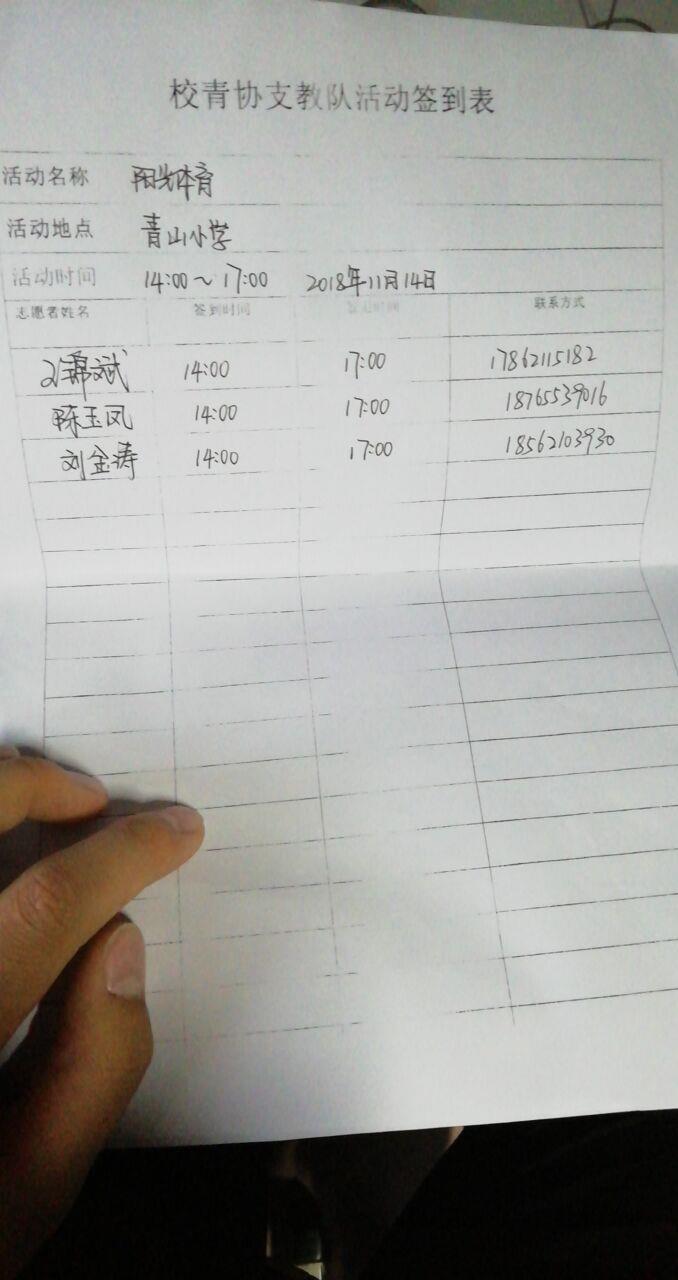 校青协支教队活动签到表
活动名称 阳光体育
活动地点 青山小学
活动时间 14:00～17:00 2018年11月14日
志愿者姓名 签到时间 签退时间 联系方式
刘锦斌 14:00 17:00 17862115182
陈玉凤 14:00 17:00 18765539016
刘金涛 14:00 17:00 18562103930